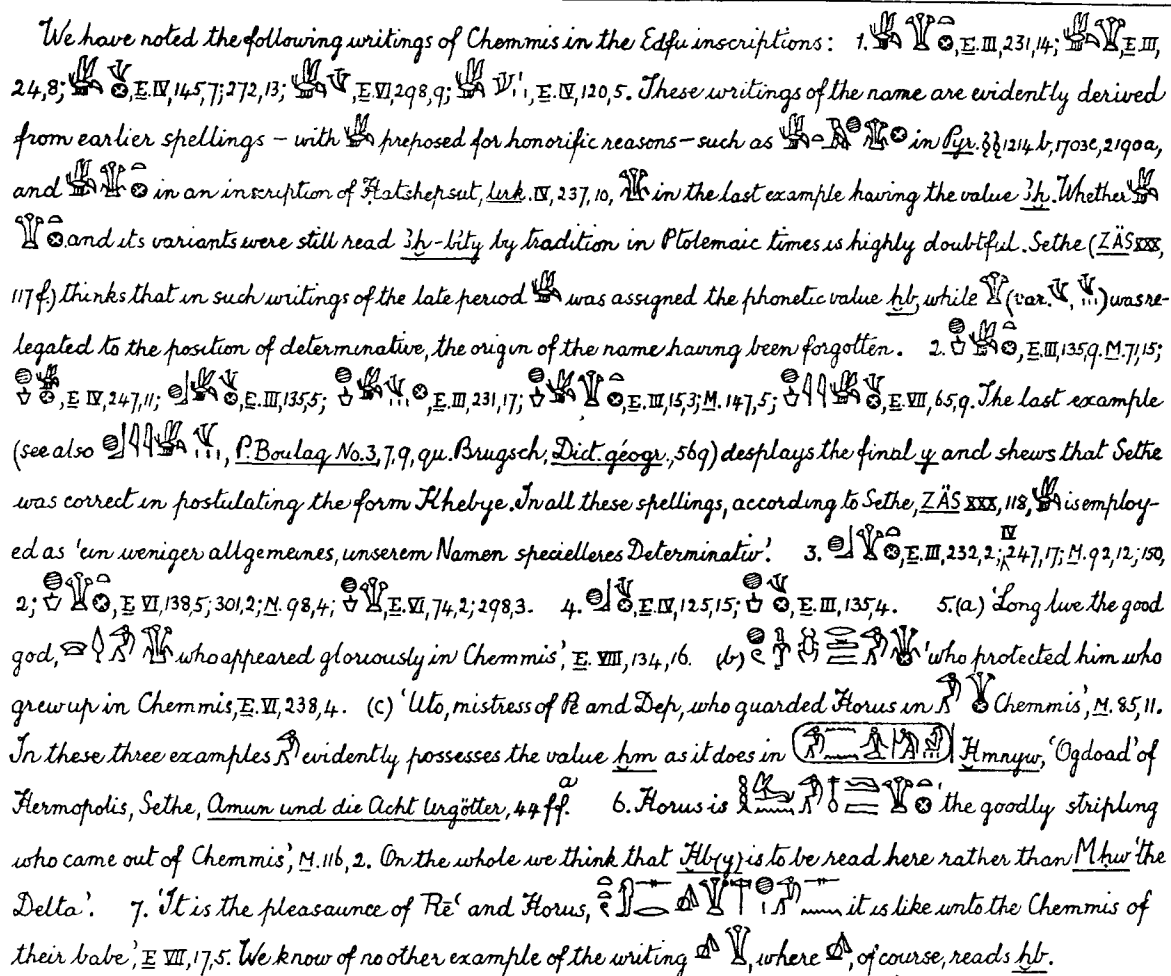 We have noted the following writings of Chemmis in the Edfu inscriptions: 1. , E. III, 231, 14; E. III,
24, 8; , E. IV, 145, 7; 272, 13; , E. VI 298, 9; , E. IV, 120, 5. These writings of the name are evidently derived
from earlier spellings – with preposed for honorific reasons – such as in Pyr. §§ 1214 b, 1703 c, 2190 a,
and in an inscription of Hatshepsut, Urk. IV, 237, 10, in the last example having the value ꜣḫ. Whether
and its variants were still read ꜣḫ-bity by tradition in Ptolemaic times is highly doubtful. Sethe (ZÄS XXX,
117 f.) thinks that in such writings of the late period was assigned the phonetic value ḫb, while (var. , ) was re-
legated to the position of determinative, the origin of the name having been forgotten. 2. , E. III, 135, 9. M. 71, 15;
, E IV, 247, 11; , E. III, 135, 5; , E. III, 231, 17; , E. III, 15, 3; M. 147, 5; , E. VII, 65, 9. The last example
(see also , P. Boulaq No. 3, 7, 9, qu. Brugsch, Dict. géogr., 569) desplays the final y and shews that Sethe
was correct in postulating the form Khebye. In all these spellings, according to Sethe, ZÄS XXX, 118, is employ-
ed as 'ein weniger allgemeines, unserem Namen specielleres Determinativ'. 3. , E. III, 232, 2; IV 247, 17; M. 92, 12; 150,
2; , E VI, 138, 5; 301, 2; M. 98, 4; , E. VI, 74, 2; 298, 3. 4. , E. IV, 125, 15; , E. III, 135, 4. 5. (a) 'Long live the good
god, who appeared gloriously in Chemmis', E. VIII, 134, 16. (b) 'who protected him who
grew up in Chemmis, E. VI, 238, 4. (c) 'Uto, mistress of Pe and Dep, who guarded Horus in Chemmis', M. 85, 11.
In these three examples evidently possesses the value ḫm as it does in Ḫmnyw, 'Ogdoad' of
Hermopolis, Sethe, Amun und die Acht Urgötter, 44 ff. a 6. Horus is 'the goodly stripling
who came out of Chemmis', M. 116, 2. On the whole we think that Ḫb(y) is to be read here rather than Mḥw 'the
Delta'. 7. 'It is the pleasaunce of Rēʿ and Horus, it is like unto the Chemmis of
their babe', E VII, 17, 5. We know of no other example of the writing , where , of course, reads ḫb.